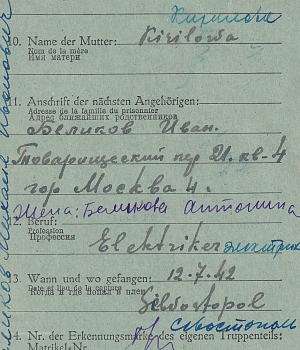 Кирилова
0. Name der Mutter: Kirilowa
Nom de la mère
Имя матери
1. Anschrift der nächsten Angehörigen:
Adresse de la famille du prisonnier
Адрес ближайших родственников
Беликов Иван.
Товарищеский пер 21. кв-4
гор Москва 4.
Жена: Беликова Антонина
2. Beruf:
Profession
Профессия
Elektriker электрик
3. Wann und wo gefangen: 12.7.42
Date et lieu de la capture
Когда и где попал в плен
Sewostopol
Севостополь
4. Nr. der Erkennungsmarke des eigenen Truppenteils:
Matrikel-Nr.
Беликов Михаил Иванович